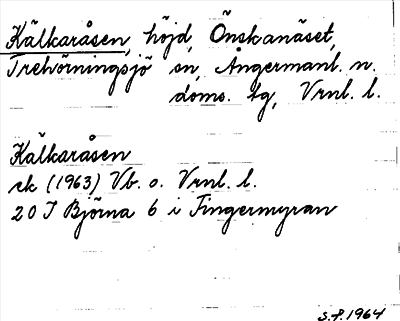 Kälkaråsen, höjd, Önskanäset,
Trehörningsjö sn, Ångermanl. n.
doms. tg, Vrnl. l.
Kälkaråsen
ek (1963) Vb. o. Vrnl. l.
20 J Björna 6 i Fingermyran
S.P. 1964